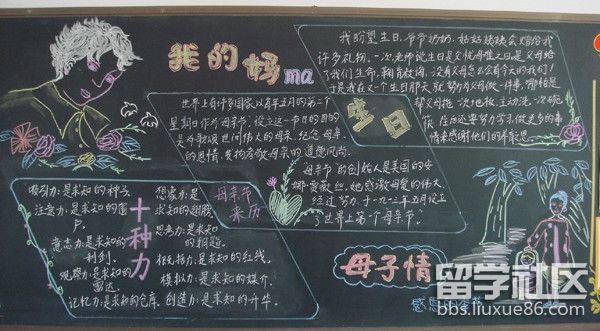 我的妈ma
世界上有许多国家以每年五月的第二个
星期日作为母亲节。设立这一节日的目的
是为歌颂世间伟大的母亲,纪念母亲
的恩情,发扬孝敬母亲的道德风尚。
母亲节
来历
母亲节的创始人是美国的安
娜·贾薇丝,她感激母爱的伟大,
经过努力,于一九一三年五月设立
了世界上第一个母亲节。
生日
我盼望生日,爷爷奶奶、
会赠给我
许多礼物。一次,老师说生日是父忧母难之日,是父母给
了我们生命,鞠育教诲,没有父母怎么会有今天的我们!
于是,我在又一个生日那天,就努力为父母做一件事,哪怕是
帮父母拖一次地板,主动洗一次碗
筷,往后还要努力学习做更多的事
情来感谢他们的养育恩。
十种力
吸引力:是求知的种子
注意力:是求知的窗
户。
意志力:是求知的
利剑。
观察力:是求知的
雷达。
记忆力:是求知的仓库。
想象力:是
求知的翅膀
思考力:是求知
的钥匙。
是求知的红线。
模拟力:是求知的媒介。
创造力:是求知的升华。
母子情
感恩
留学社区
bbs.liuxue86.com